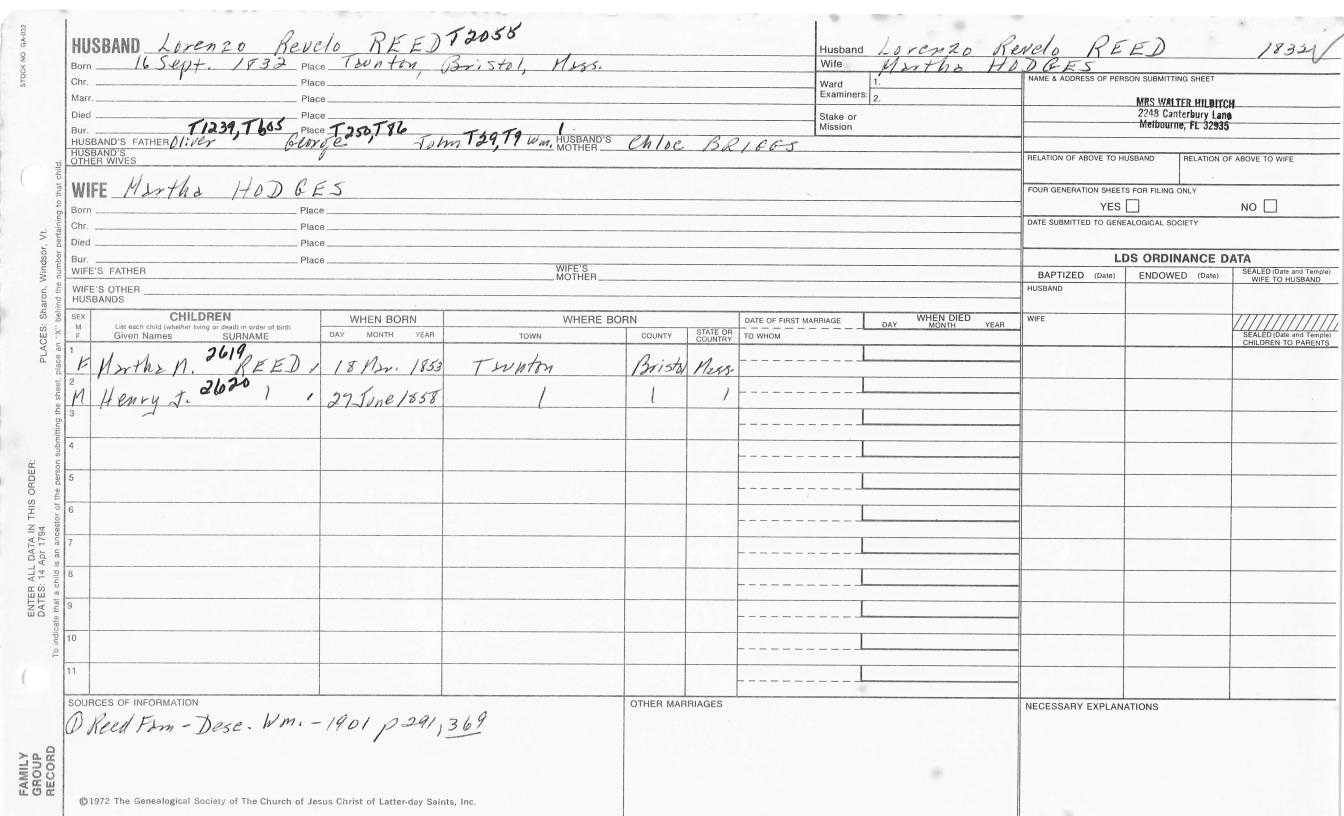 STOCK NO. GA-032
HUSBAND Lorenzo Revelo REED T2055
Born 16 Sept. 1832 Place Taunton, Bristol, Mass.
Chr. Place
Marr. Place
Died Place
Bur. T1239, T605 Place T250, T86
HUSBAND'S FATHER Oliver George John T29, T9 Wm. HUSBAND'S MOTHER Chloe BRIGGS
HUSBAND'S OTHER WIVES
Husband Lorenzo Revelo REED 1832 ✓
Wife Martha HODGES
Ward Examiners: 1.
2.
Stake or Mission
NAME & ADDRESS OF PERSON SUBMITTING SHEET
MRS WALTER HILDITCH
2248 Canterbury Lane
Melbourne, FL 32935
RELATION OF ABOVE TO HUSBAND RELATION OF ABOVE TO WIFE
FOUR GENERATION SHEETS FOR FILING ONLY
YES NO
DATE SUBMITTED TO GENEALOGICAL SOCIETY
WIFE Martha HODGES
Born Place
Chr. Place
Died Place
Bur. Place
WIFE'S FATHER WIFE'S MOTHER
WIFE'S OTHER HUSBANDS
LDS ORDINANCE DATA
BAPTIZED (Date) ENDOWED (Date) SEALED (Date and Temple) WIFE TO HUSBAND
HUSBAND
WIFE
SEALED (Date and Temple) CHILDREN TO PARENTS
SEX M F
CHILDREN
List each child (whether living or dead) in order of birth
Given Names SURNAME
WHEN BORN
DAY MONTH YEAR
WHERE BORN
TOWN COUNTY STATE OR COUNTRY
DATE OF FIRST MARRIAGE
TO WHOM
WHEN DIED
DAY MONTH YEAR
1 F Martha N. 2619 REED, 18 Mar. 1853 Taunton Bristol Mass.
2 M Henry J. 2620 27 June 1858
3
4
5
6
7
8
9
10
11
SOURCES OF INFORMATION
① Reed Fam - Desc. Wm. - 1901 p 291, 369
OTHER MARRIAGES
NECESSARY EXPLANATIONS
©1972 The Genealogical Society of The Church of Jesus Christ of Latter-day Saints, Inc.
FAMILY GROUP RECORD
ENTER ALL DATA IN THIS ORDER:
DATES: 14 Apr 1794
PLACES: Sharon, Windsor, Vt.
To indicate that a child is an ancestor of the person submitting the sheet, place an "X" behind the number pertaining to that child.